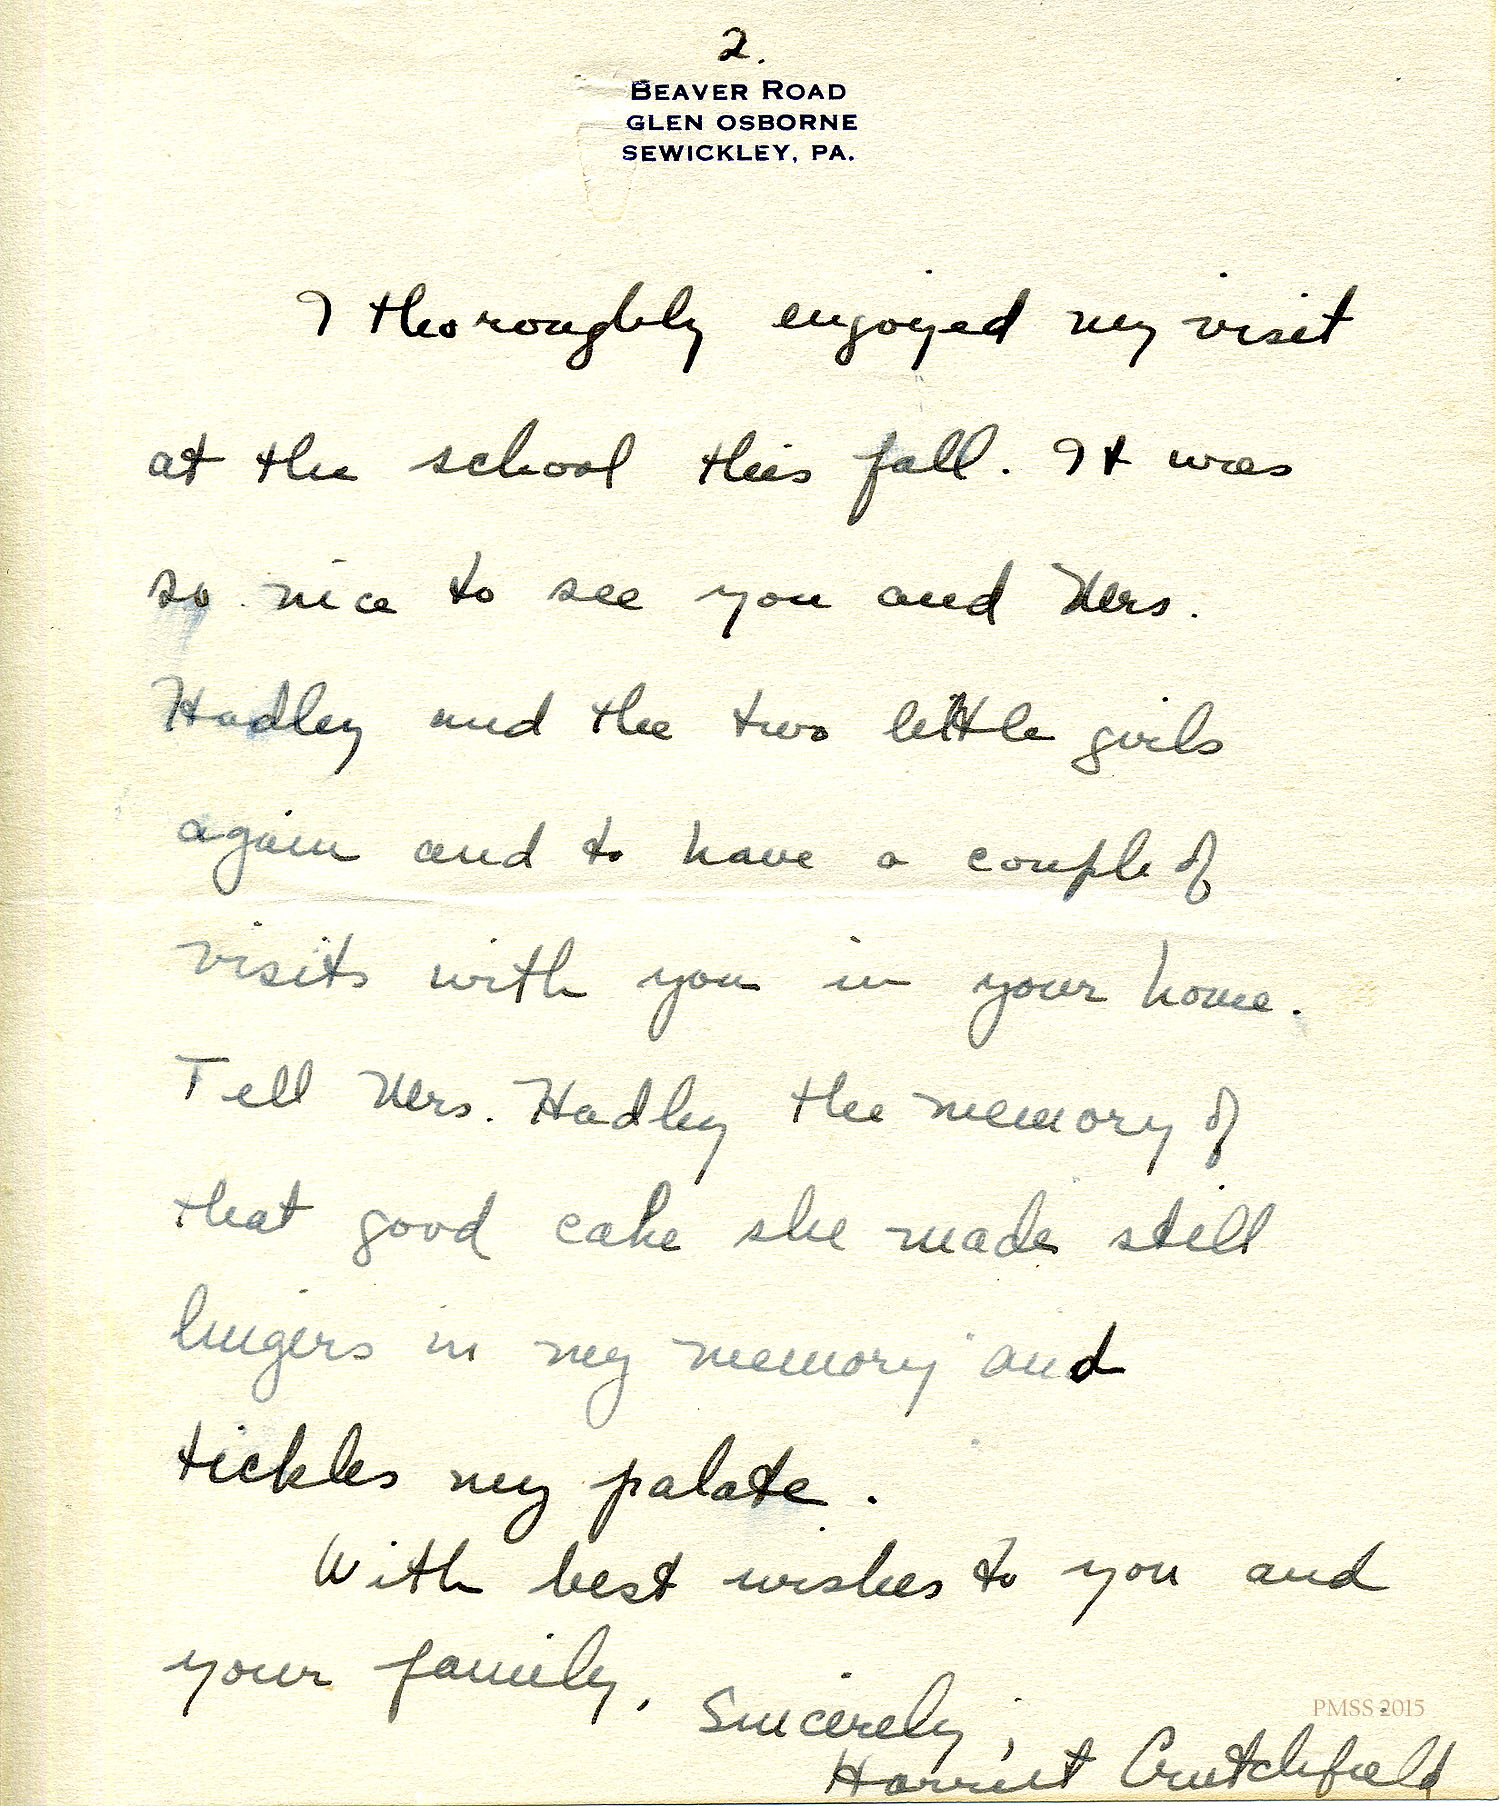 2.
BEAVER ROAD
GLEN OSBORNE
SEWICKLEY, PA.
I thoroughly enjoyed my visit
at the school this fall. It was
so nice to see you and Mrs.
Hadley and the two little girls
again and to have a couple of
visits with you in your home.
Tell Mrs. Hadley the memory of
that good cake she made still
lingers in my memory and
tickles my palate.
With best wishes to you and
your family,
Sincerely,
Harriet Crutchfield
PMSS 2015